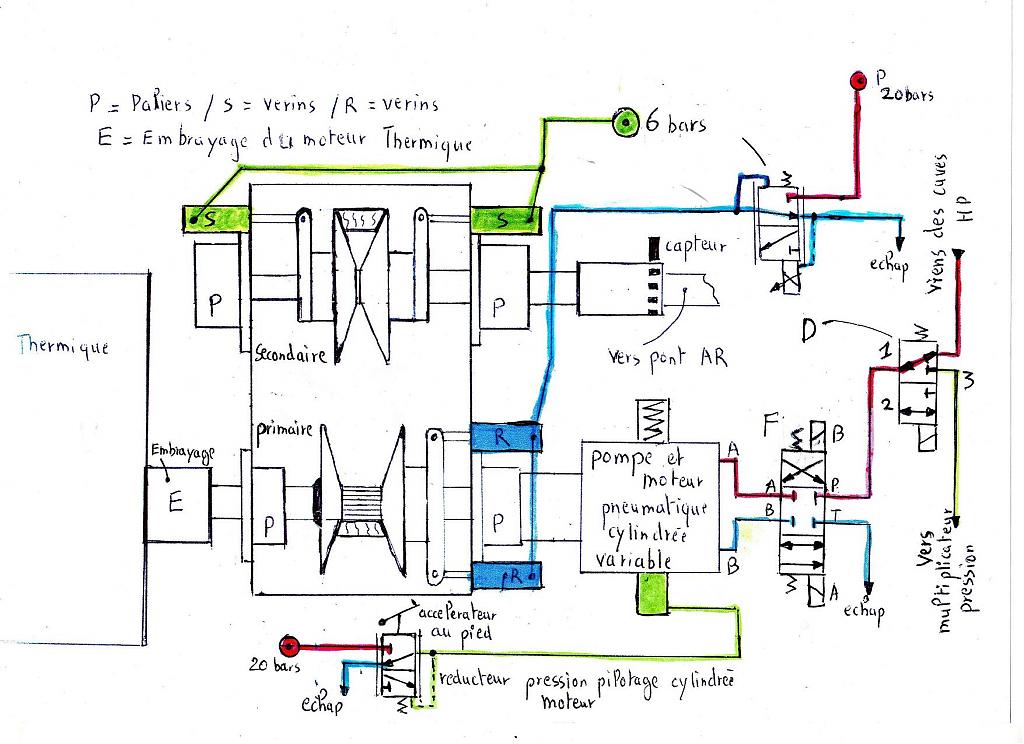 P = Paliers / S = verins / R = verins
E = Embrayage du moteur Thermique
6 bars
P
20 bars
S
S
P
P
capteur
echap
Viens des cuves
HP
Thermique
secondaire
vers pont AR
D
1
2
3
primaire
R
Embrayage
E
P
P
R
pompe et
moteur
pneumatique
cylindrée
variable
A
B
F
B
A
P
B
T
A
echap
vers
multiplicateur
pression
accelerateur
au pied
20 bars
echap
reducteur pression pilotage cylindrée
moteur